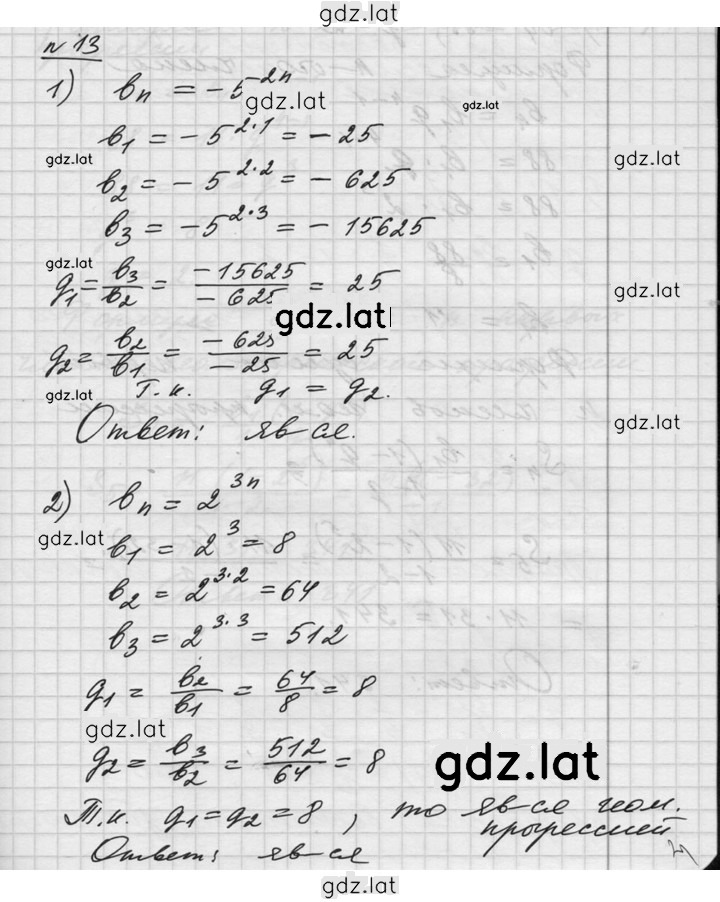 gdz.lat
№ 13
1) bₙ = -5^-2n
gdz.lat
gdz.lat
b₁ = -5^2·1 = -25
gdz.lat
gdz.lat
b₂ = -5^2·2 = -625
b₃ = -5^2·3 = -15625
gdz.lat
g₁ = b₃/b₂ = -15625/-625 = 25
gdz.lat
gdz.lat
g₂ = b₂/b₁ = -625/-25 = 25
gdz.lat
Т.к. g₁ = g₂.
gdz.lat
Ответ: яв-ся.
2) bₙ = 2^3n
gdz.lat
b₁ = 2^3 = 8
gdz.lat
b₂ = 2^3·2 = 64
b₃ = 2^3·3 = 512
g₁ = b₂/b₁ = 64/8 = 8
gdz.lat
g₂ = b₃/b₂ = 512/64 = 8
gdz.lat
Т.к. g₁ = g₂ = 8, то яв-ся геом.
прогрессией
Ответ: яв-ся
gdz.lat